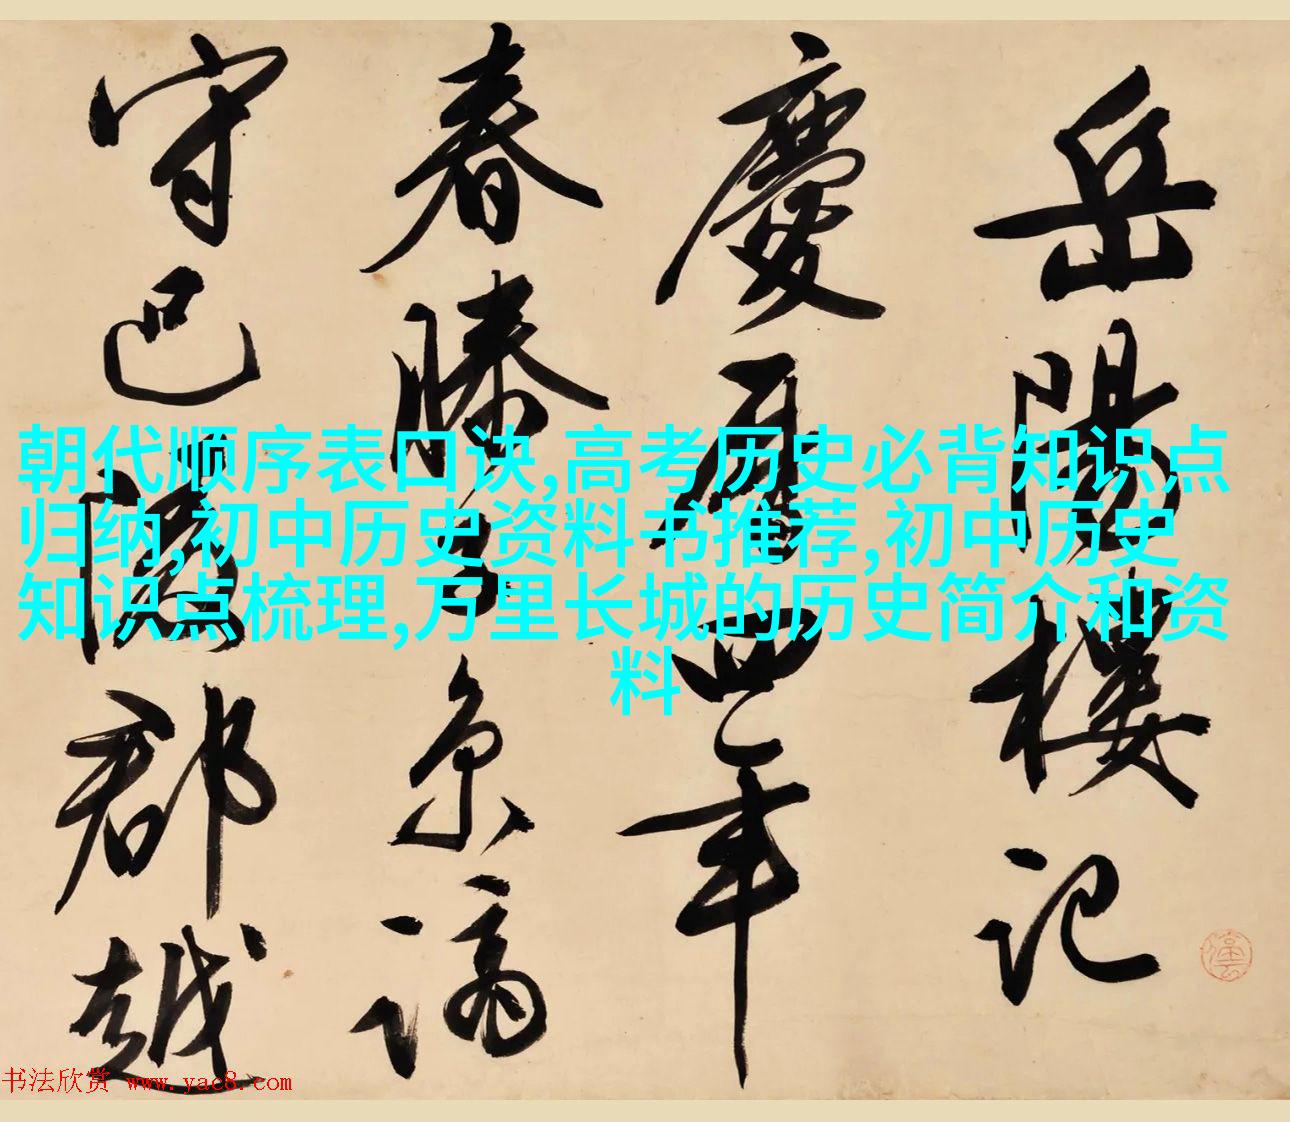 岳陽樓記
慶曆四年
春滕子京謫
守巴陵郡越
朝代顺序表口诀,高考历史必背知识点
归纳,初中历史资料书推荐,初中历史
知识点梳理,万里长城的历史简介和资
料
书法欣赏 www.yac8.com